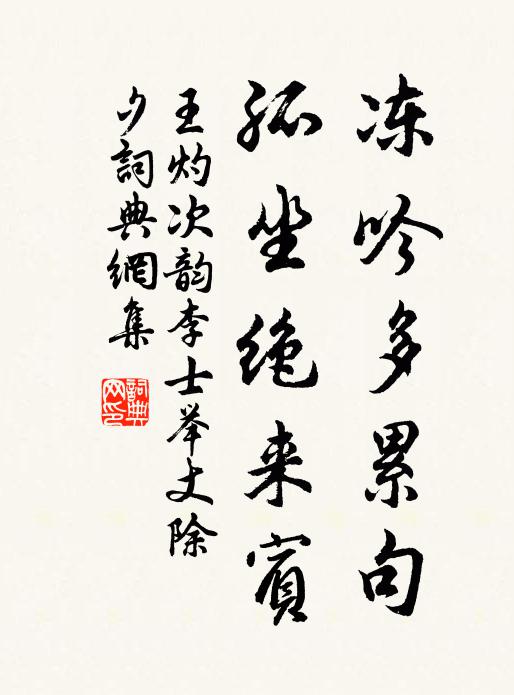 冻吟多累句
孤坐绝来宾
王灼次韵李士举丈除
夕詞典網集
詞典
网印